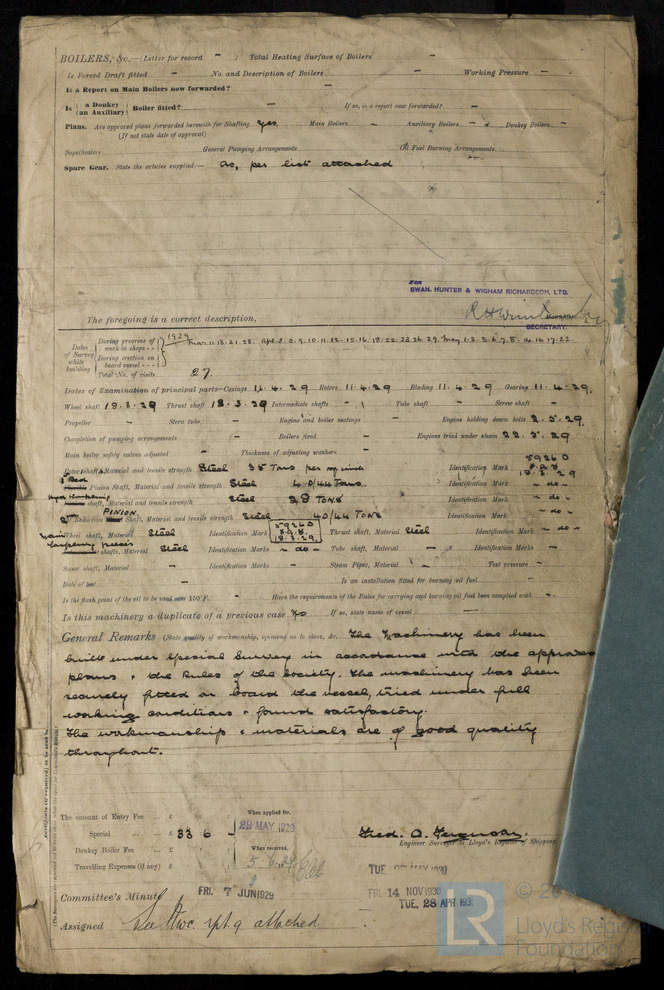 BOILERS, &c.—(Letter for record - ) Total Heating Surface of Boilers -
Is Forced Draft fitted - No. and Description of Boilers - Working Pressure -
Is a Report on Main Boilers now forwarded? -
Is { a Donkey / an Auxiliary } Boiler fitted? - If so, is a report now forwarded? -
Plans. Are approved plans forwarded herewith for Shafting Yes Main Boilers - Auxiliary Boilers - Donkey Boilers -
(If not state date of approval)
Superheaters General Pumping Arrangements Oil Fuel Burning Arrangements -
Spare Gear. State the articles supplied:— As, per list attached
FOR
SWAN, HUNTER & WIGHAM RICHARDSON, LTD.
The foregoing is a correct description,
SECRETARY.
Dates of Survey while building
During progress of work in shops - - 1929 Mar. 11. 18. 21. 28. Apl. 2. 5. 9. 10. 11. 12. 15. 16. 18. 22. 23. 26. 29. May 1. 2. 3. 6. 7. 8. 14. 16. 17. 22.
During erection on board vessel - - -
Total No. of visits 27.
Dates of Examination of principal parts—Casings 11. 4. 29 Rotors 11. 4. 29 Blading 11. 4. 29 Gearing 11. 4. 29.
Wheel shaft 19. 3. 29 Thrust shaft 18. 3. 29 Intermediate shafts - Tube shaft - Screw shaft -
Propeller - Stern tube - Engine and boiler seatings - Engine holding down bolts 2. 5. 29.
Completion of pumping arrangements - Boilers fixed - Engines tried under steam 22. 5. 29.
Main boiler safety valves adjusted - Thickness of adjusting washers
Rotor shaft, Material and tensile strength Steel 35 Tons per sq. inch Identification Mark 5926 D 18. 3. 29
Pinion Shaft, Material and tensile strength Steel 40/44 Tons.. Identification Mark - do -
shaft, Material and tensile strength Steel 28 TONS Identification Mark - do -
2nd Reduction PINION Shaft, Material and tensile strength Steel 40/44 TONS Identification Mark - do -
Main Wheel shaft, Material Steel Identification Mark 5926 D 18. 3. 29 Thrust shaft, Material Steel Identification Mark - do -
shafts, Material Steel Identification Marks - do - Tube shaft, Material - Identification Marks -
Screw shaft, Material - Identification Marks - Steam Pipes, Material - Test pressure -
Date of test - Is an installation fitted for burning oil fuel -
Is the flash point of the oil to be used over 150°F. - Have the requirements of the Rules for carrying and burning oil fuel been complied with -
Is this machinery a duplicate of a previous case No If so, state name of vessel -
General Remarks (State quality of workmanship, opinions as to class, &c. The Machinery has been
built under Special Survey in accordance with the approved
plans & the Rules of the Society. The machinery has been
securely fitted on board the vessel, tried under full
working conditions & found satisfactory.
The workmanship & materials are of good quality
throughout.
The amount of Entry Fee ... £ : : When applied for,
Special ... ... £ 33 : 6 : - 29 MAY 1929
Donkey Boiler Fee ... £ : : When received,
Travelling Expenses (if any) £ : : 5. 6. 29
Fred. A. Ferguson.
Engineer Surveyor to Lloyd's Register of Shipping.
Committee's Minute FRI. 7 JUN 1929
TUE MAY 1930
FRI 14 NOV 1930
TUE. 28 APR 193
Assigned See F.W.C. rpt. 9 attached
LR
© 20
Lloyd's Register
Foundation